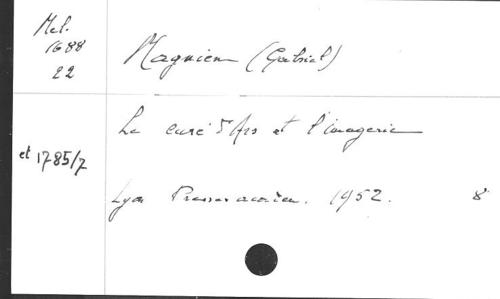 Mel.
1688
22
Magnien (Gabriel)
Le curé d'Ars et l'imagerie
et 1785/7
Lyon 1952. 8